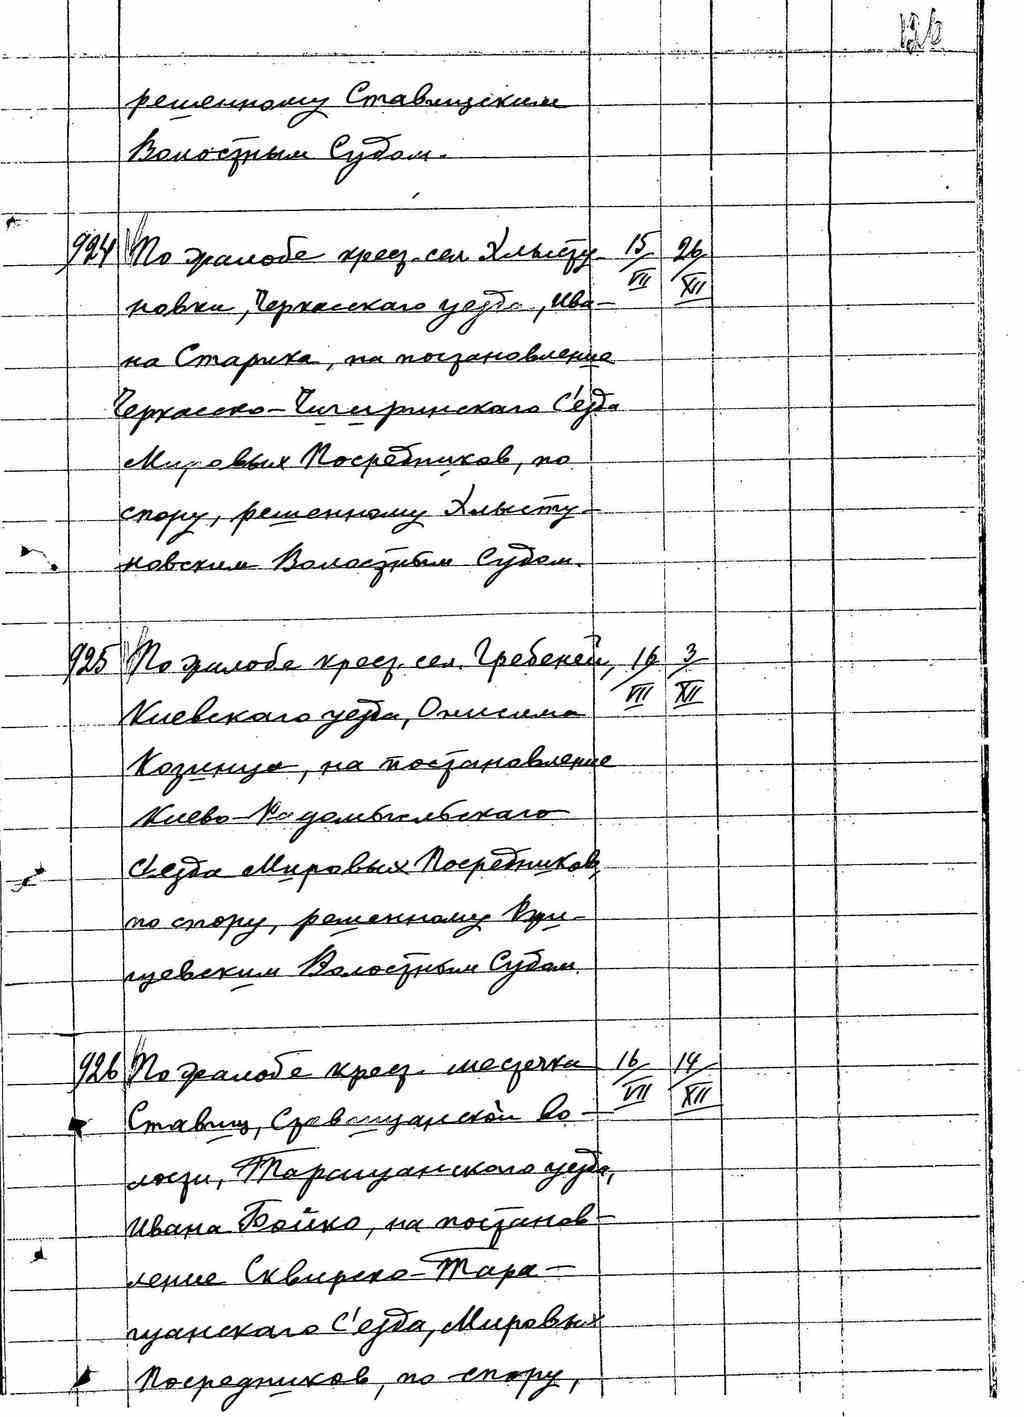 126
решенному Ставищским
Волостным Судом.
924 По жалобе крест. сел. Хлысту- 15/VII 26/XII
новки, Черкасскаго уезда, Ива-
на Старика, на постановление
Черкасско-Чигиринскаго С'езда
Мировых Посредников, по
спору, решенному Хлысту-
новским Волостным Судом.
925 По жалобе крест. сел. Гребеней, 16/VII 3/XII
Киевскаго уезда, Онисима
Козинца, на постановление
Киево-Радомысльскаго
С'езда Мировых Посредников,
по спору, решенному Ржи-
щевским Волостным Судом.
926 По жалобе крест. местечка 16/VII 14/XII
Ставищ, Ставищанской во-
лости, Таращанскаго уезда,
Ивана Бойко, на постанов-
ление Сквирско-Тара-
щанскаго С'езда, Мировых
Посредников, по спору,